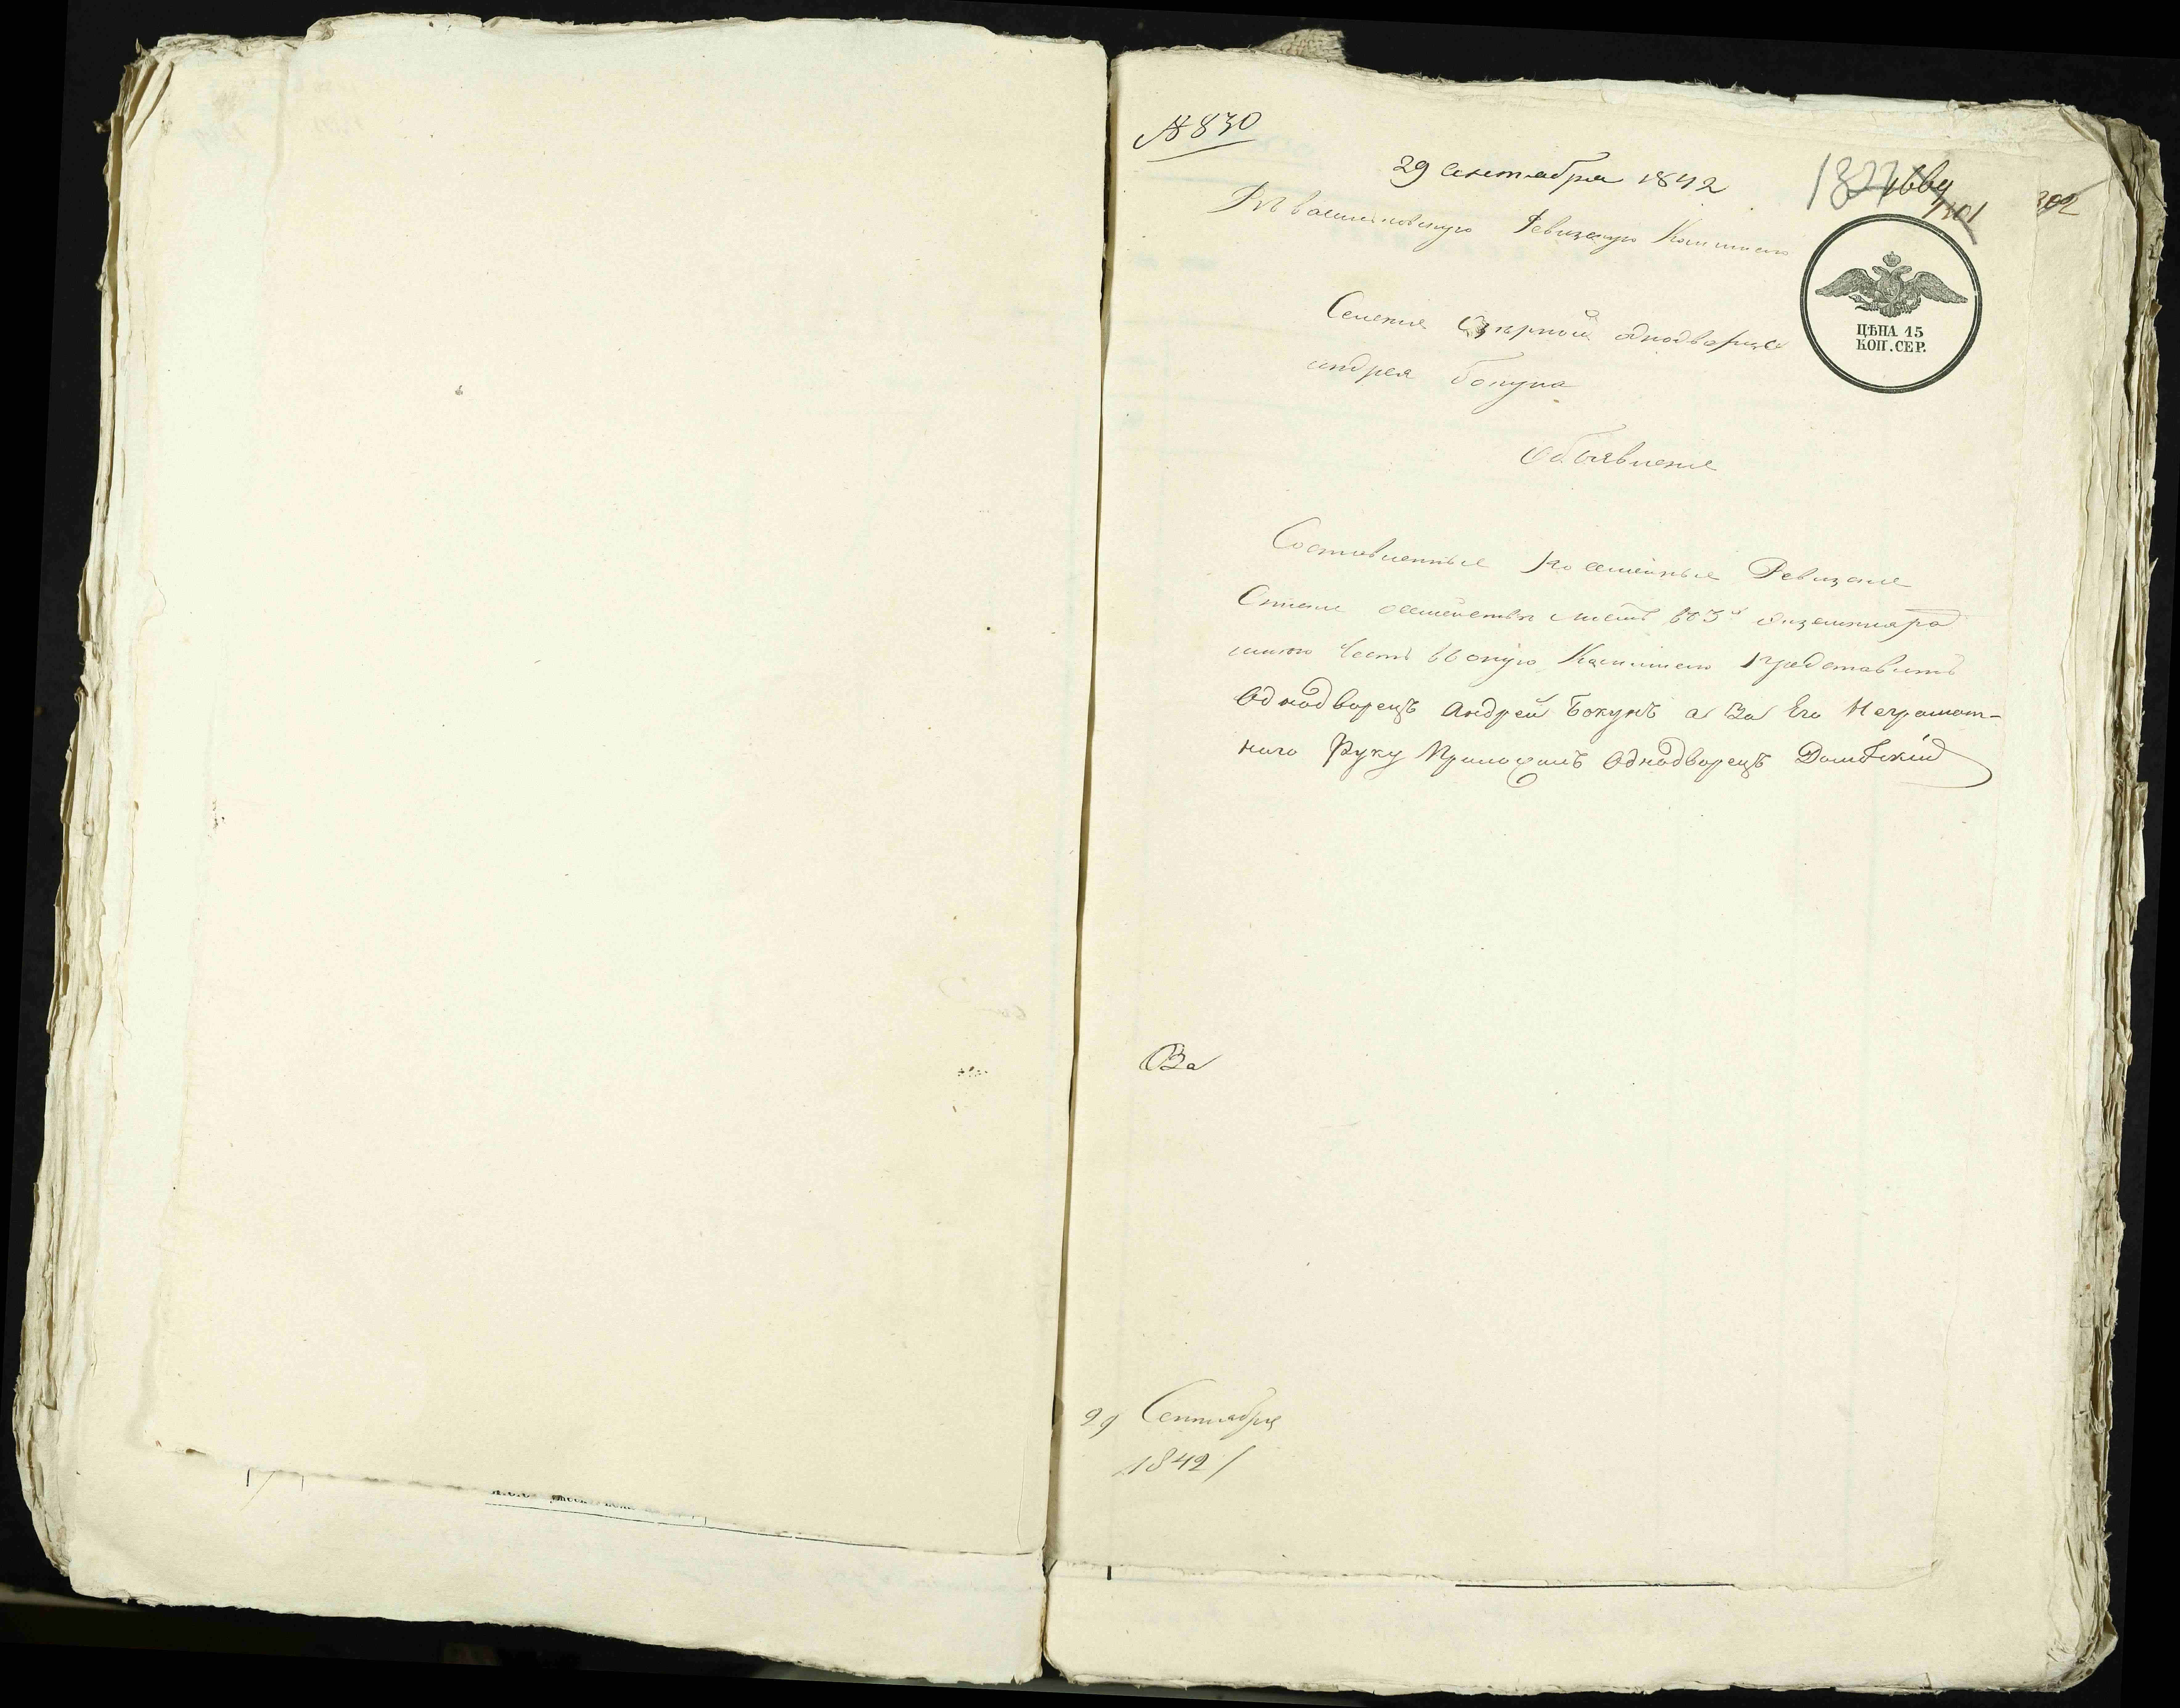 № 830
29 сентября 1842
302
Въ василковскую Ревизкую Коммисию
ЦѢНА 15
КОП. СЕР.
Селения Озѣрной однодворца
андрея бокуна
Объявление
Составленные посемейные Ревизкие
семейства въ 3х экземпляра
имею честь въ оную Коммисию представить
Однодворецъ Андрей Бокунъ а За Его Неграмот-
наго Руку Приложилъ Однодворецъ
За
29 Сентября
1842